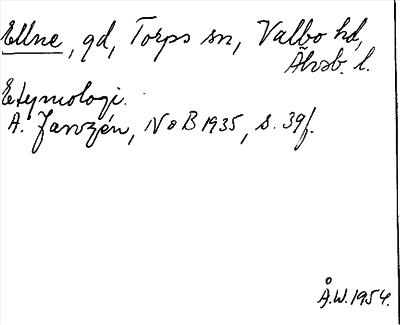 Ellne, gd, Torps sn, Valbo hd,
Älvsb. l.
Etymologi.
A. Janzén, NoB 1935, s. 39f.
Å.W. 1954.